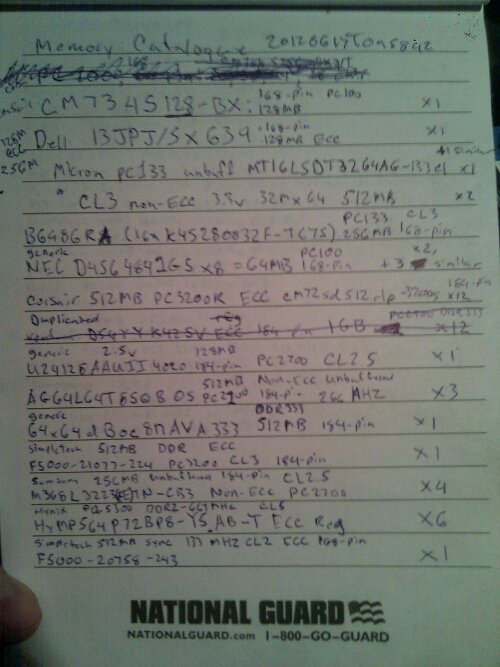 Memory Catalogue 20120619T095842
168-pin PC100
CM734S128-BX: 128MB x1
168-pin
Dell 13JPJ/5X639: 128MB ECC x1
256M Micron PC133 unbuff MT16LSDT3264AG-133 x1
" CL3 non-ECC 3.3v 32Mx64 512MB x2
PC133 CL3
B6486R (16x K4S280832F-TC75) 256MB 168-pin
generic PC100 x2,
NEC D4564841G5 x8 = 64MB 168-pin +3 similar
184-pin
Corsair 512MB PC3200R ECC cm72sd512rlp-3200 x12
Duplicated reg PC2700 DDR333
K42 5V ECC 184-pin 1GB x12
generic 2.5v 128MB
U24128AAUJJ4020 184-pin PC2700 CL2.5 x1
512MB Non-ECC Unbuffered
AGG4L64T8SQB0S PC2100 184-pin 266 MHZ x3
generic DDR333
64x64dBoc8nAVA333 512MB 184-pin x1
Simpletech 512MB DDR ECC
F5000-21077-224 PC3200 CL3 184-pin x1
Samsung 256MB unbuffered 184-pin CL2.5
M368L3223ETN-CB3 Non-ECC PC2700 x4
Hynix PC2-5300 DDR2-667MHz CL5
HYMP564P72BP8-Y5 AB-T ECC Reg x6
Simpletech 512MB sync 133 MHZ CL2 ECC 168-pin
F5000-20758-243 x1
NATIONAL GUARD
NATIONALGUARD.com 1-800-GO-GUARD